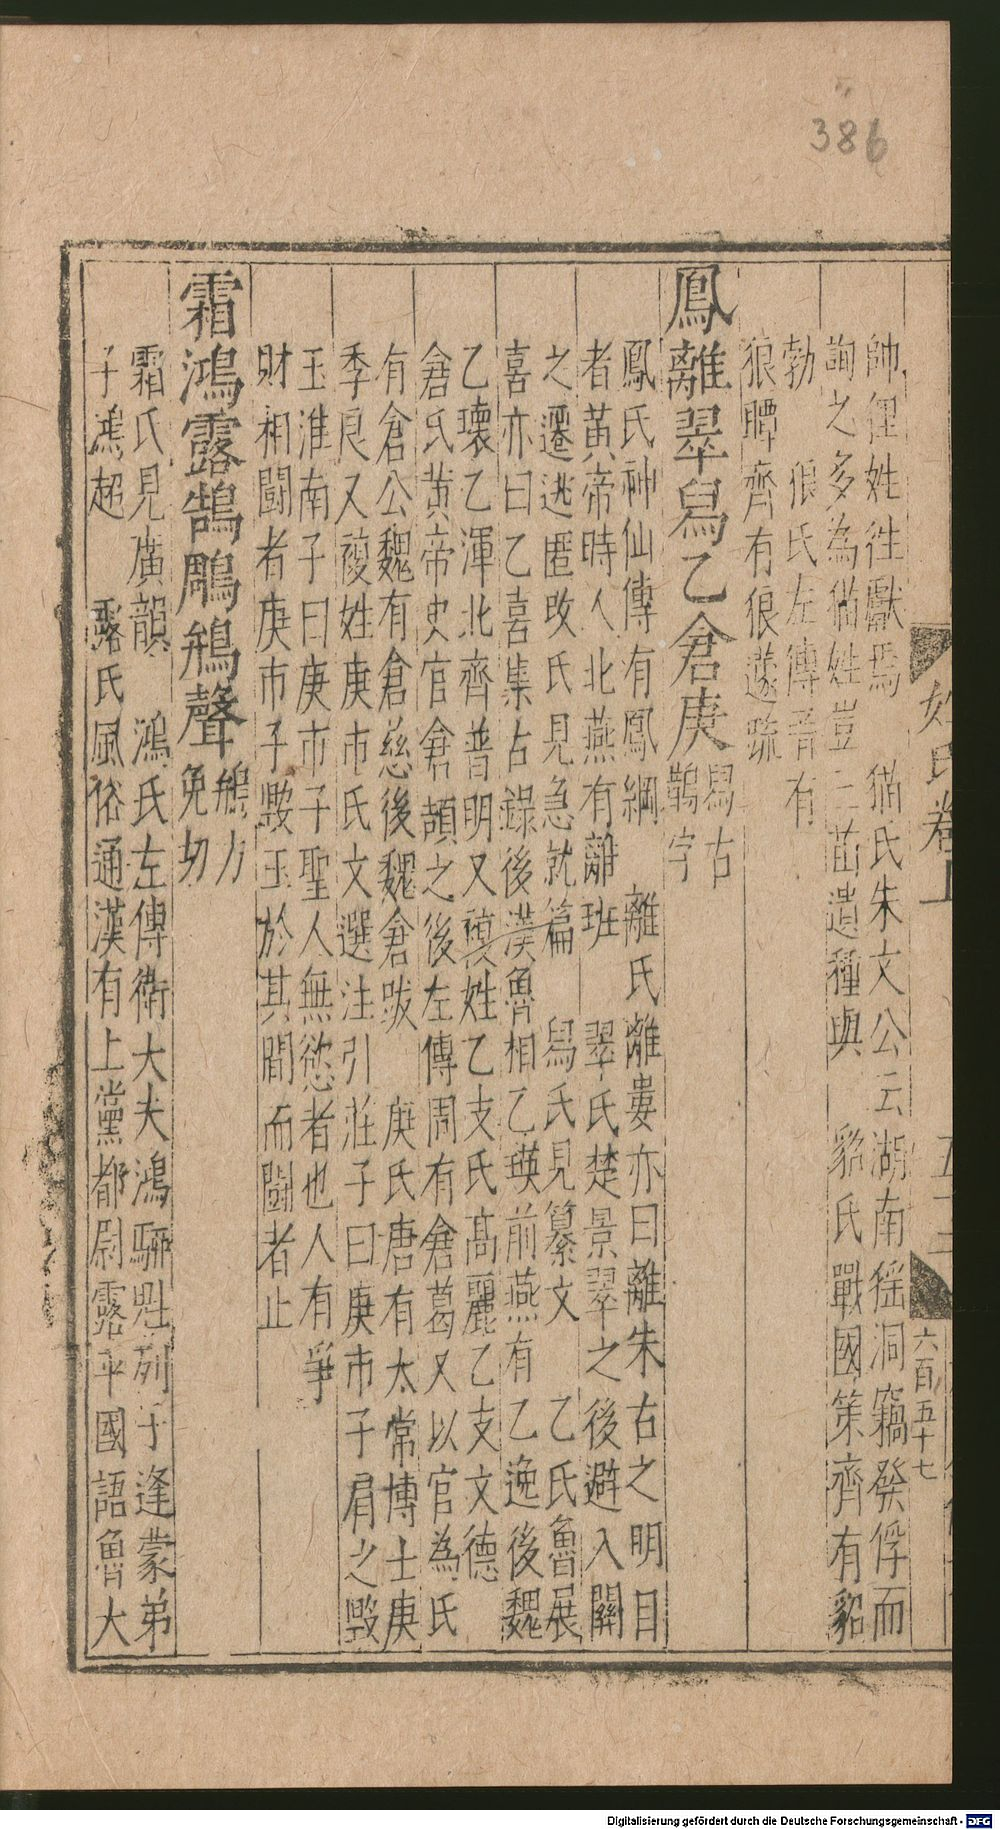 386
帥俚姓往獻焉 猫氏朱文公云湖南猺洞竊發俘而
詢之多為猫姓豈三苗遺種與 貉氏戰國策齊有貉
勃 狼氏左傳晋有
狼瞫齊有狼蘧疏
鳳離翠舄乙倉庚 舄古
鵲字
鳳氏神仙傳有鳳綱 離氏離婁亦曰離朱古之明目
者黃帝時人北燕有離班 翠氏楚景翠之後避入關
之遷逃匿改氏見急就篇 舄氏見纂文 乙氏魯展
喜亦曰乙喜集古錄後漢魯相乙瑛前燕有乙逸後魏
乙瓌乙渾北齊普明又複姓乙支氏高麗乙支文德
倉氏黃帝史官倉頡之後左傳周有倉葛又以官為氏
有倉公魏有倉慈後魏倉跋 庚氏唐有太常博士庚
季良又複姓庚市氏文選注引莊子曰庚市子肩之毀
玉淮南子曰庚市子聖人無慾者也人有爭
財相鬪者庚市子毀玉於其間而鬪者止
霜鴻露鵠鵰鵷聲 鵷力
免切
霜氏見廣韻 鴻氏左傳衛大夫鴻駵魋列子逢蒙弟
子鴻超 露氏風俗通漢有上黨都尉露平國語魯大
姓氏卷
六百五十七
Digitalisierung gefördert durch die Deutsche Forschungsgemeinschaft - DFG